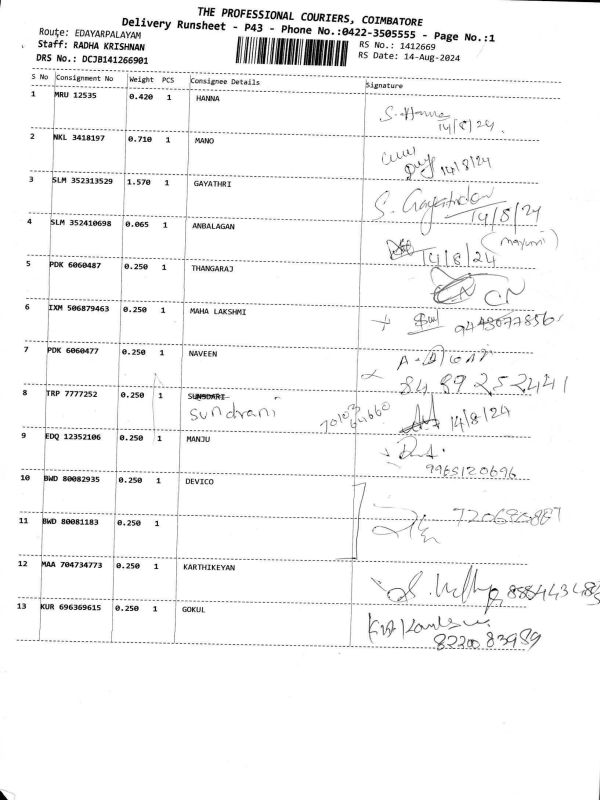 THE PROFESSIONAL COURIERS, COIMBATORE
Delivery Runsheet - P43 - Phone No.:0422-3505555 - Page No.:1
Route: EDAYARPALAYAM
Staff: RADHA KRISHNAN
RS No.: 1412669
DRS No.: DCJB141266901
RS Date: 14-Aug-2024
S No Consignment No Weight PCS Consignee Details Signature
1 MRU 12535 0.420 1 HANNA
14/8/24.
2 NKL 3418197 0.710 1 MANO
14/8/24
3 SLM 352313529 1.570 1 GAYATHRI
S. Gayathri
14/8/24
4 SLM 352410698 0.065 1 ANBALAGAN
14/8/24
5 PDK 6060487 0.250 1 THANGARAJ
CN
6 IXM 506879463 0.250 1 MAHA LAKSHMI
9443077856
7 PDK 6060477 0.250 1 NAVEEN
84 89 252441
8 TRP 7777252 0.250 1 SUNSDARI
Sundrani
14/8/24
9 EDQ 12352106 0.250 1 MANJU
9965120696
10 BWD 80082935 0.250 1 DEVICO
11 BWD 80081183 0.250 1
12 MAA 704734773 0.250 1 KARTHIKEYAN
13 KUR 696369615 0.250 1 GOKUL
8220083989